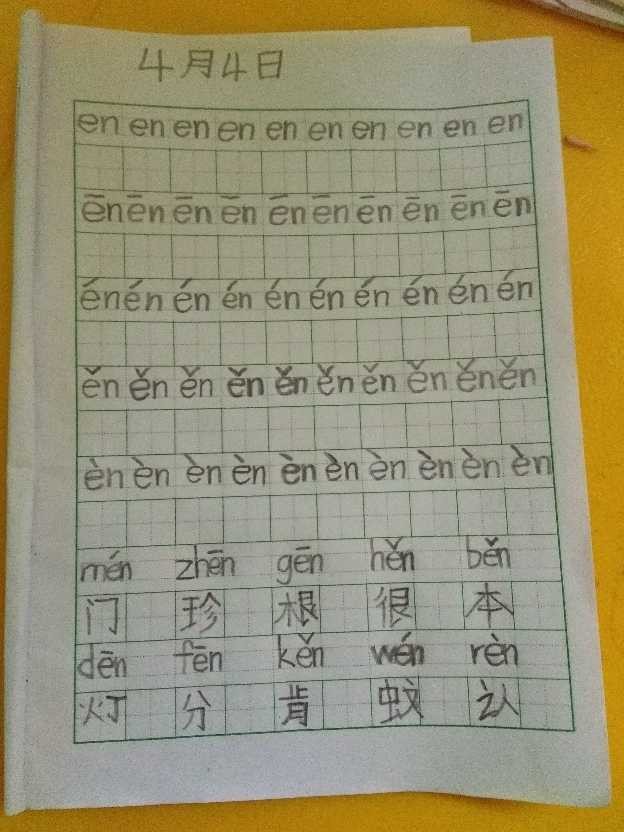 4月4日
en en en en en en en en en en
ēn ēn ēn ēn ēn ēn ēn ēn ēn ēn
én én én én én én én én én én
ěn ěn ěn ěn ěn ěn ěn ěn ěn ěn
èn èn èn èn èn èn èn èn èn èn
mén zhēn gēn hěn běn
门 珍 根 很 本
dēn fēn kěn wén rèn
灯 分 肯 蚊 认